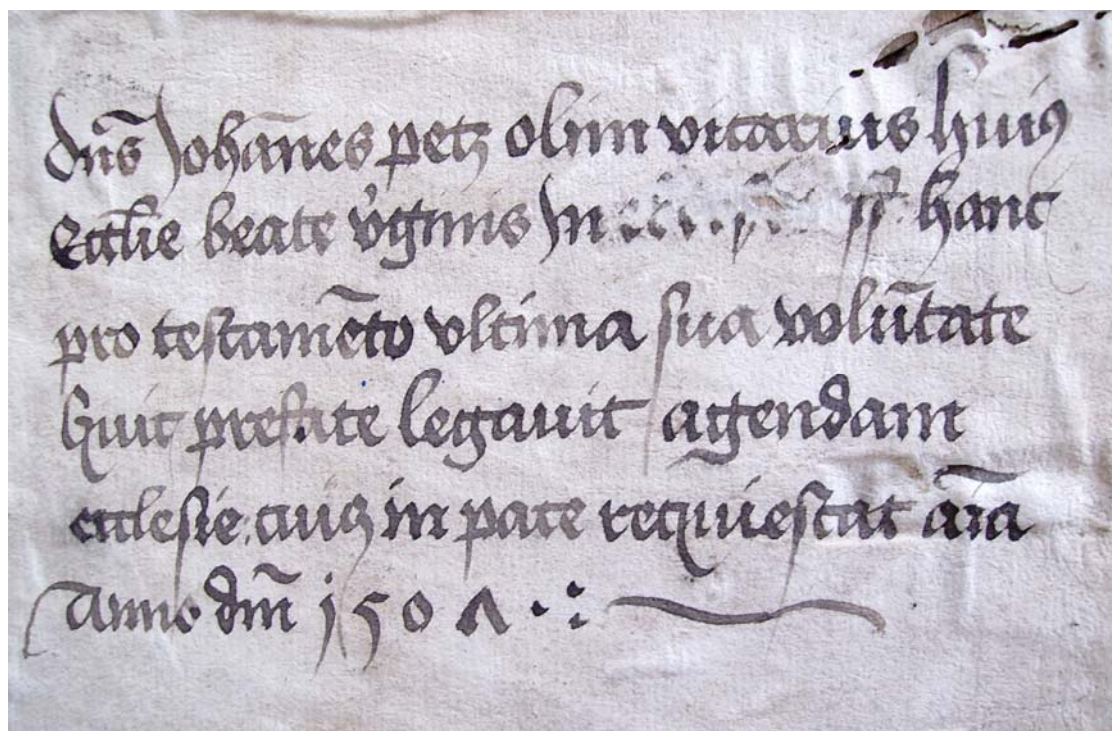 Dn̄s Johān̄es petz olim vicarius huiꝰ
Eccl̄ie beate v̓ginis In hanc
pro testamēto vltima sua volūtate
huic prefate legauit agendam
ecclesie cuiꝰ in pace requiescat aīa
Anno dm̄ 150Λ